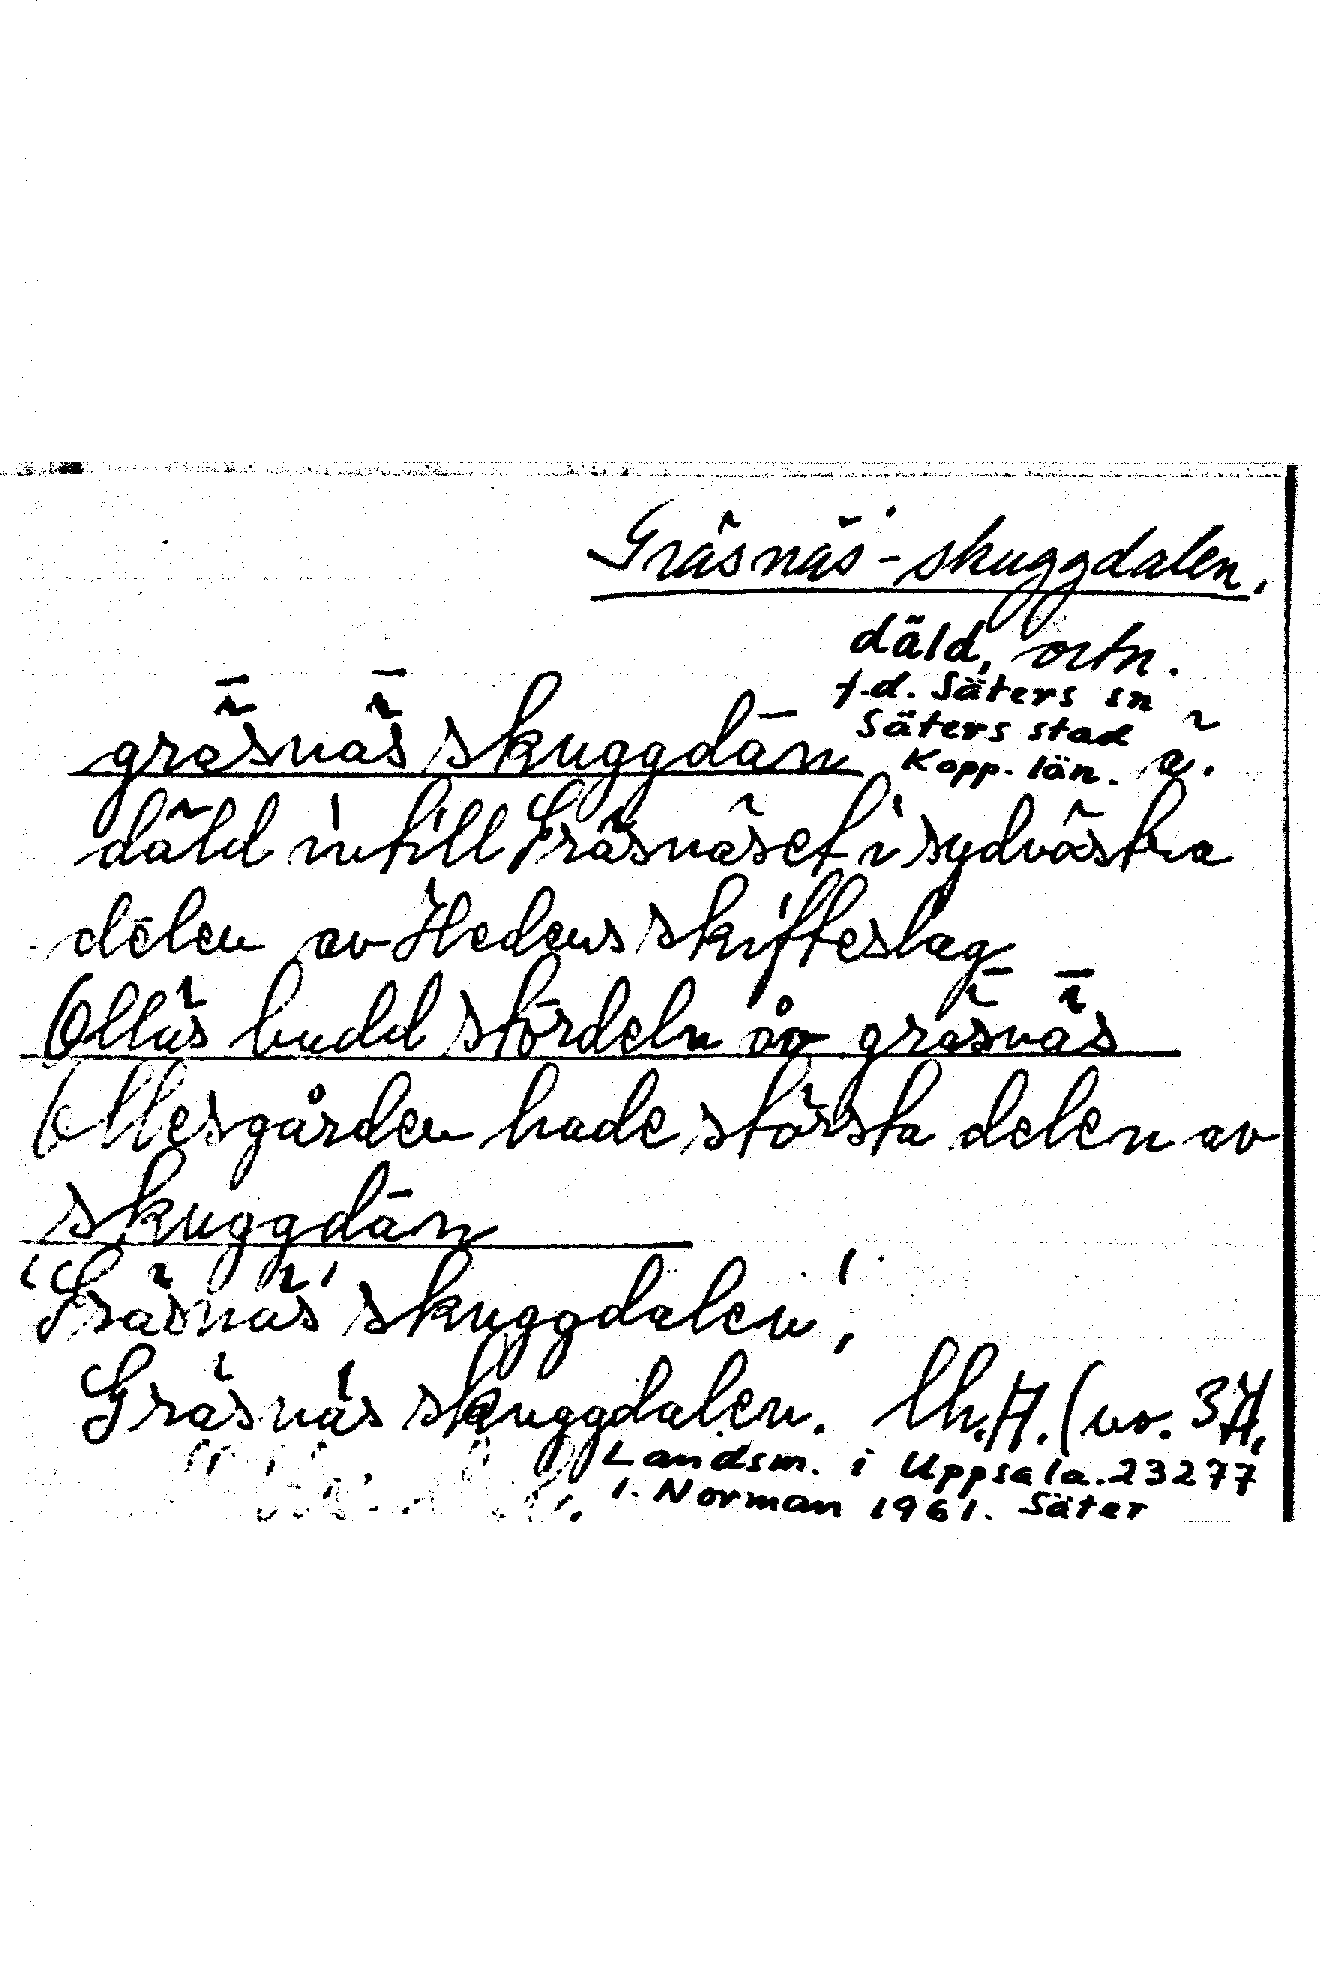 Gräsnäs-skuggdalen.
däld, ortn.
f.d. Säters sn
Säters stad
Kopp. län. ä.
grǟsnǟs skuggdān
däld intill Gräsnäset i sydvästra
delen av Hedens skifteslag
Olläs hadd stördeln åv grǟsnǟs
Ollesgården hade största delen av
skuggdān
'Gräsnäs' skuggdalen',
Gräsnäs skuggdalen.
Landsm. i Uppsala. 23277
I. Norman 1961. Säter